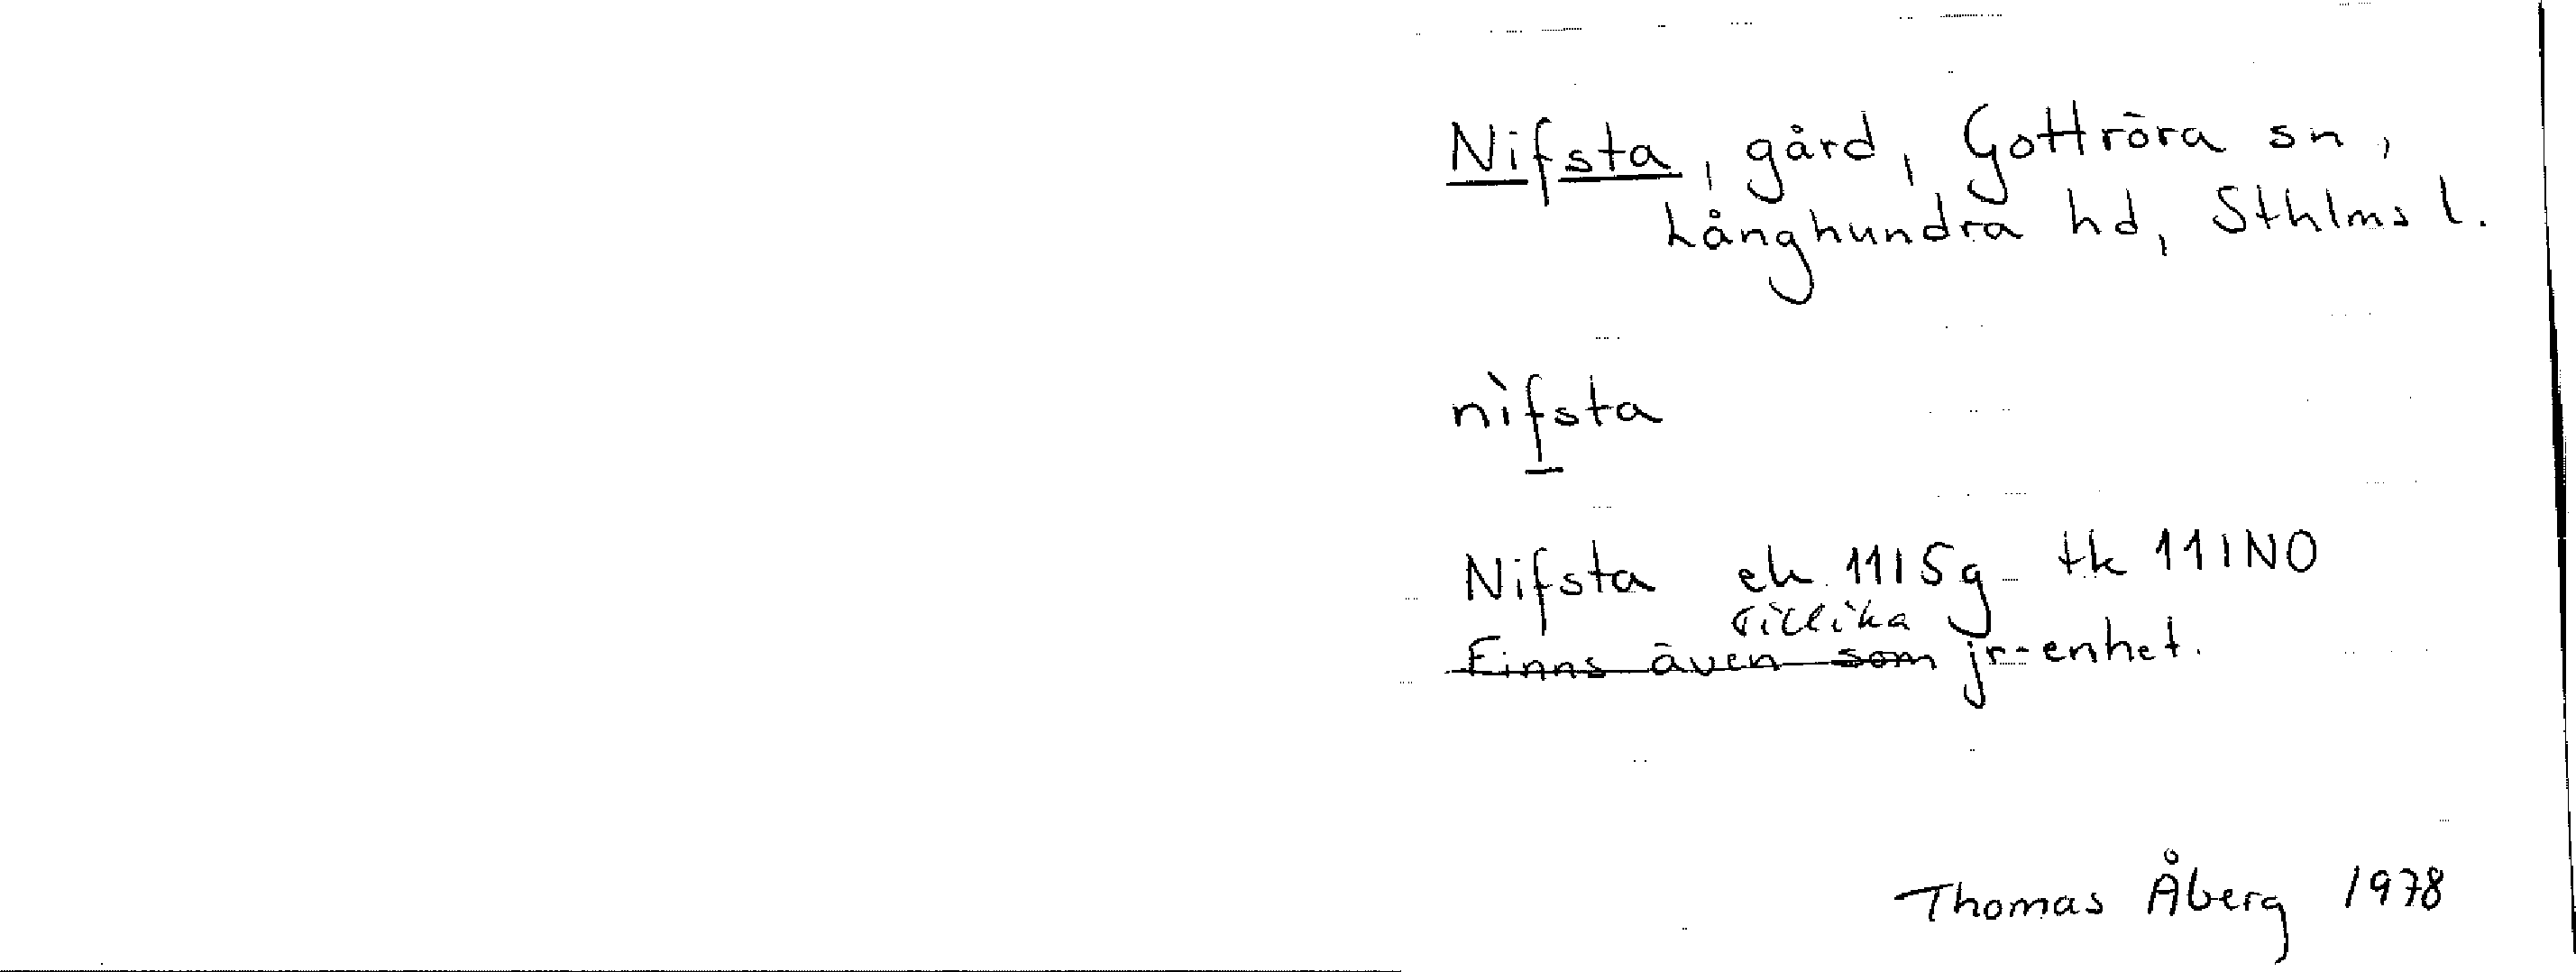 Nifsta, gård, Gottröra sn,
Långhundra hd, Sthlms l.
nìfsta
Nifsta ek 11I5g tk 11INO
tillika
Finns även som jr-enhet.
Thomas Åberg 1978